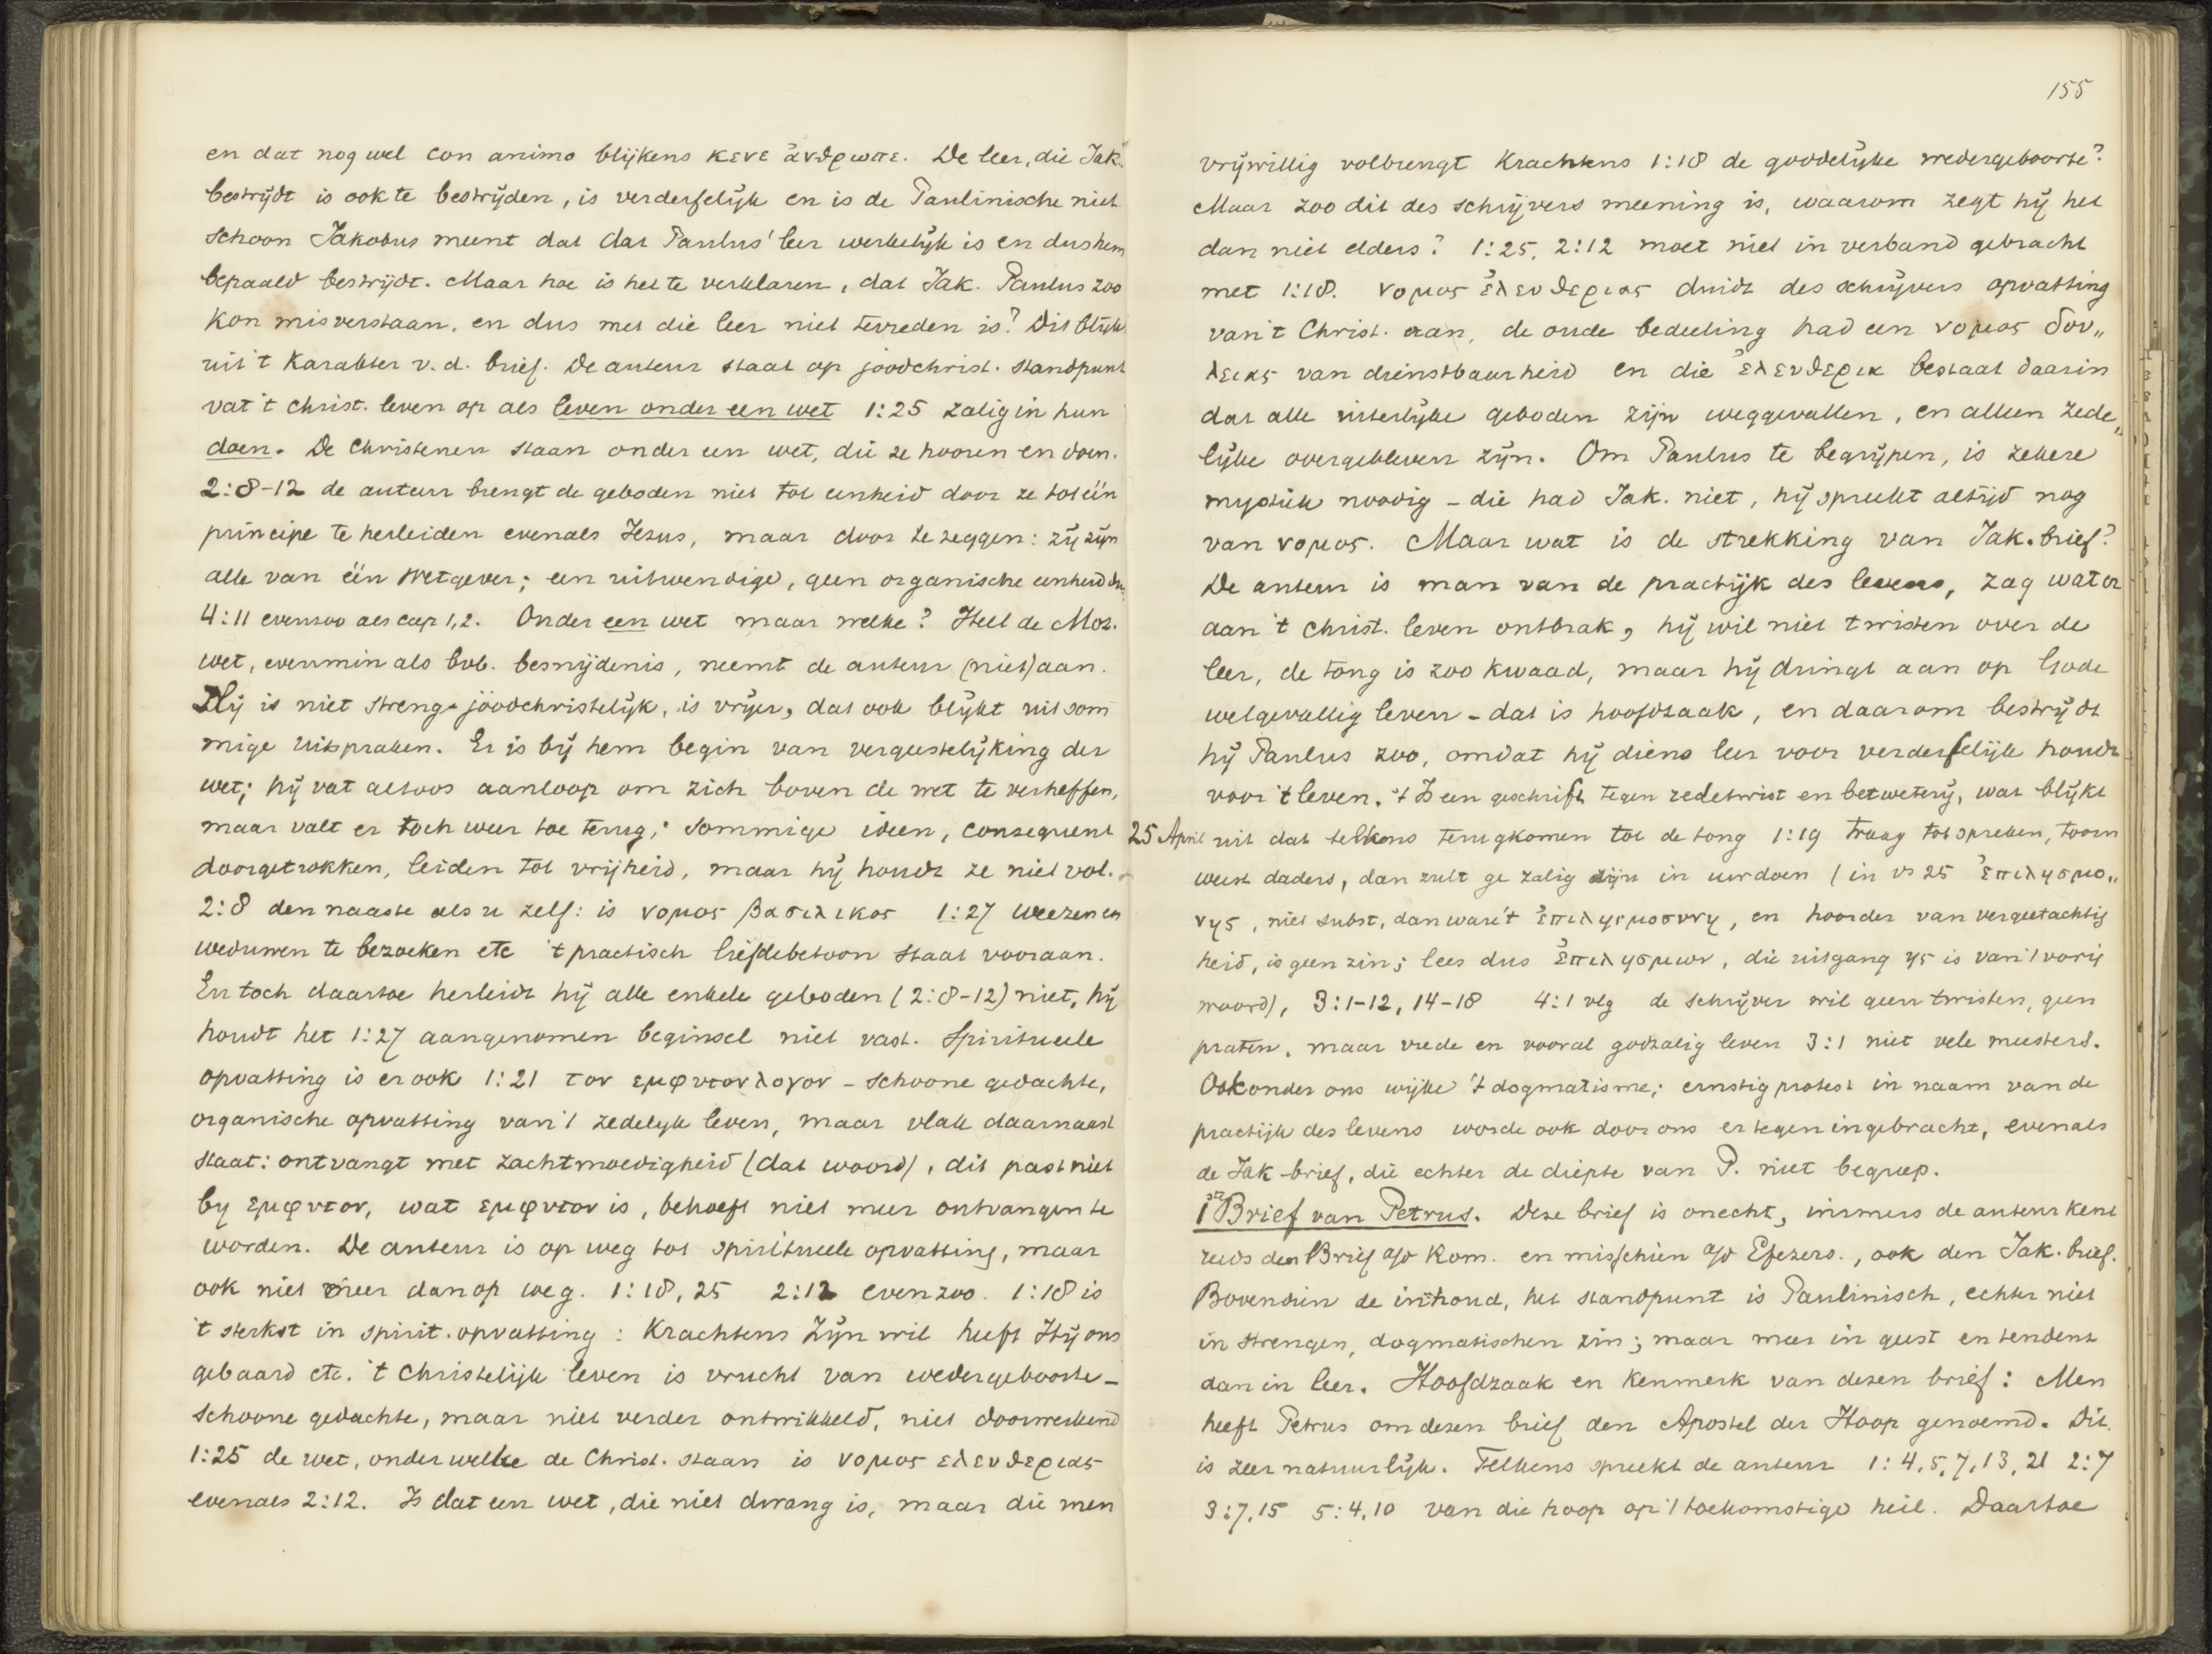 en dat nog wel con animo blijkens κενε ἀνθρωπε. De leer, die Jak.
bestrijdt is ook te bestrijden, is verderfelijk en is de Paulinische niet
schoon Jakobus meent dat dat Paulus' leer werkelijk is en dus hem
bepaald bestrijdt. Maar hoe is het te verklaren, dat Jak. Paulus zoo
kon misverstaan, en dus met die leer niet tevreden is? Dit blijk
uit 't karakter v. d. brief. De auteur staat op joodchrist. standpunt
vat 't christ. leven op als leven onder een wet 1:25 zalig in hun
doen. De Christenen staan onder een wet, die ze hooren en doen.
2:8-12 de auteur brengt de geboden niet tot eenheid door ze tot één
principe te herleiden evenals Jezus, maar door te zeggen: zij zijn
alle van één Wetgever; een uitwendige, geen organische eenheid dus
4:11 evenzoo als cap 1,2. Onder een wet maar welke? Heel de Moz.
wet, evenmin als bvb. besnijdenis, neemt de auteur (niet) aan.
Hij is niet streng-joodchristelijk, is vrijer, dat ook blijkt uit som
mige uitspraken. Er is bij hem begin van vergeestelijking der
wet; hij vat altoos aanloop om zich boven de wet te verheffen,
maar valt er toch weer toe terug; sommige ideen, consequent
doorgetrokken, leiden tot vrijheid, maar hij houdt ze niet vol.
2:8 den naaste als u zelf: is νομος βασιλικος 1:27 weezen en
weduwen te bezoeken etc 't practisch liefdebetoon staat vooraan.
En toch daartoe herleidt hij alle enkele geboden (2:8-12) niet, hij
houdt het 1:27 aangenomen beginsel niet vast. Spiritueele
opvatting is er ook 1:21 τον εμφυτον λογον - schoone gedachte,
organische opvatting van 't zedelijk leven, maar vlak daarnaast
staat: ontvangt met zachtmoedigheid (dat woord), dit past niet
by εμφυτον, wat εμφυτον is, behoeft niet meer ontvangen te
worden. De auteur is op weg tot spiritueele opvatting, maar
ook niet meer dan op weg. 1:18, 25 2:12 evenzoo. 1:18 is
't sterkst in spirit. opvatting: Krachtens Zijn wil heeft Hij ons
gebaard etc. 't Christelijk leven is vrucht van wedergeboorte -
schoone gedachte, maar niet verder ontwikkeld, niet doorwerkend
1:25 de wet, onder welke de Christ. staan is νομος ελευθεριας
evenals 2:12. Is dat een wet, die niet dwang is, maar die men
155
vrijwillig volbrengt krachtens 1:18 de goddelijke wedergeboorte?
Maar zoo dit des schrijvers meening is, waarom zegt hij het
dan niet elders? 1:25, 2:12 moet niet in verband gebracht
met 1:18. νομος ἐλευθεριας duidt des schrijvers opvatting
van 't Christ. aan, de oude bedeeling had een νομος δου„
λειας van dienstbaarheid en die ἐλευθερια bestaat daarin
dat alle uiterlijke geboden zijn weggevallen, en alleen zede„
lijke overgebleven zijn. Om Paulus te begrijpen, is zekere
mystiek noodig - die had Jak. niet, hij spreekt altijd nog
van νομος. Maar wat is de strekking van Jak. brief?
De auteur is man van de practijk des levens, zag wat er
aan 't christ. leven ontbrak, hij wil niet twisten over de
leer, de tong is zoo kwaad, maar hij dringt aan op Gode
welgevallig leven - dat is hoofdzaak, en daarom bestrijdt
hij Paulus zoo, omdat hij diens leer voor verderfelijk houdt
voor 't leven. 't Is een geschrift tegen redetwist en betweterij, wat blijkt
25 April uit dat telkens terugkomen tot de tong 1:19 traag tot spreken, toorn
weest daders, dan zult ge zalig zijn in uw doen (in vs 25 ἐπιλησμο„
νης, niet subst, dan ware 't ἐπιλησμοσυνη, en hoorder van vergeetachtig
heid, is geen zin; lees dus ἐπιλησμων, die uitgang ης is van 't vorig
woord), 3:1-12, 14-18 4:1 vlg de schrijver wil geen twisten, geen
praten, maar vrede en vooral godzalig leven 3:1 niet vele meesters.
Ook onder ons wijke 't dogmatisme; ernstig protest in naam van de
practijk des levens worde ook door ons er tegen ingebracht, evenals
de Jak-brief, die echter de diepte van P. niet begreep.
1ste Brief van Petrus. Deze brief is onecht, immers de auteur kent
reeds den Brief a/d Rom. en misschien a/d Efezers., ook den Jak. brief.
Bovendien de inhoud, het standpunt is Paulinisch, echter niet
in strengen, dogmatischen zin; maar meer in geest en tendent
dan in leer. Hoofdzaak en kenmerk van dezen brief: Men
heeft Petrus om dezen brief den Apostel der Hoop genoemd. Dit
is zeer natuurlijk. Telkens spreekt de auteur 1:4,5,7,13,21 2:7
3:7,15 5:4,10 van die hoop op 't toekomstige heil. Daartoe